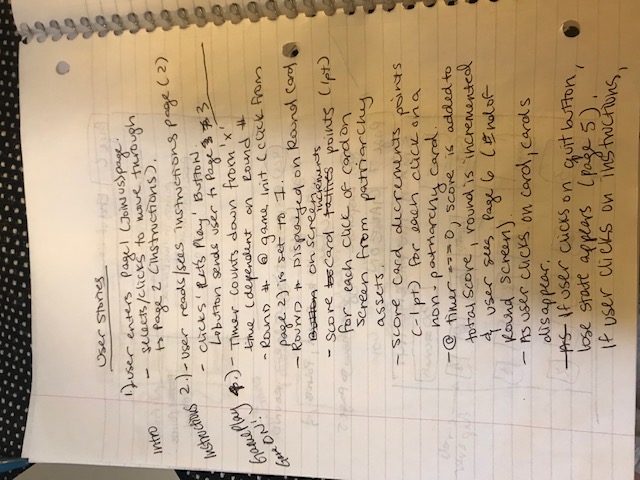 User Stories
1.) user enters page 1 (Join us) page.
Intro
- selects/clicks to move through
to Page 2 (instructions).
Instructions
2.) - User reads/sees instructions page (2)
- clicks 'Let's Play' Button.
↳ button sends user to Page 3
Game Play
Game ON!
- Timer counts down from 'x'
time (dependent on Round #
- Round # @ game init (click from
page 2) is set to 1.
- Round # Displayed on Round Card
Button on screen
increments
- Score card tallies points (1pt)
for each click of card on
screen from patriarchy
assets.
- Score card decrements points
(-1pt) for each click on a
non-patriarchy card.
- @ timer === 0, score is added to
total score, round is incremented
& user sees Page 6 (End of
Round Screen).
- As user clicks on card, cards
disappear.
- As If user clicks on quit button,
lose state appears (page 5).
If user clicks on instructions,